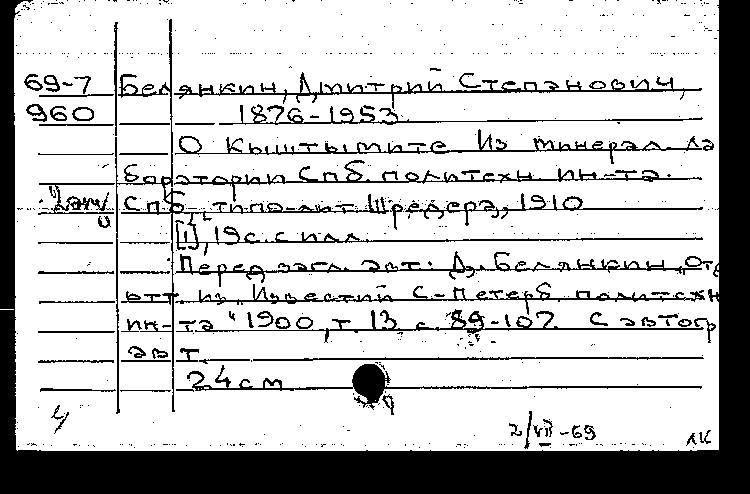 69-7 Белянкин, Дмитрий Степанович,
960 1876-1953
О Кыштымите. Из минерал. ла
боратории Спб. политехн. ин-та.
Спб., типо-лит. Шредера, 1910
[1], 19 с. с илл.
Перед загл. авт.: Д. Белянкин „Отд
отт. из „Известий С-Петерб. политехн
ин-та" 1900, т. 13, с. 89-107. С автогр
авт.
24 см
2/VII-69
ЛК